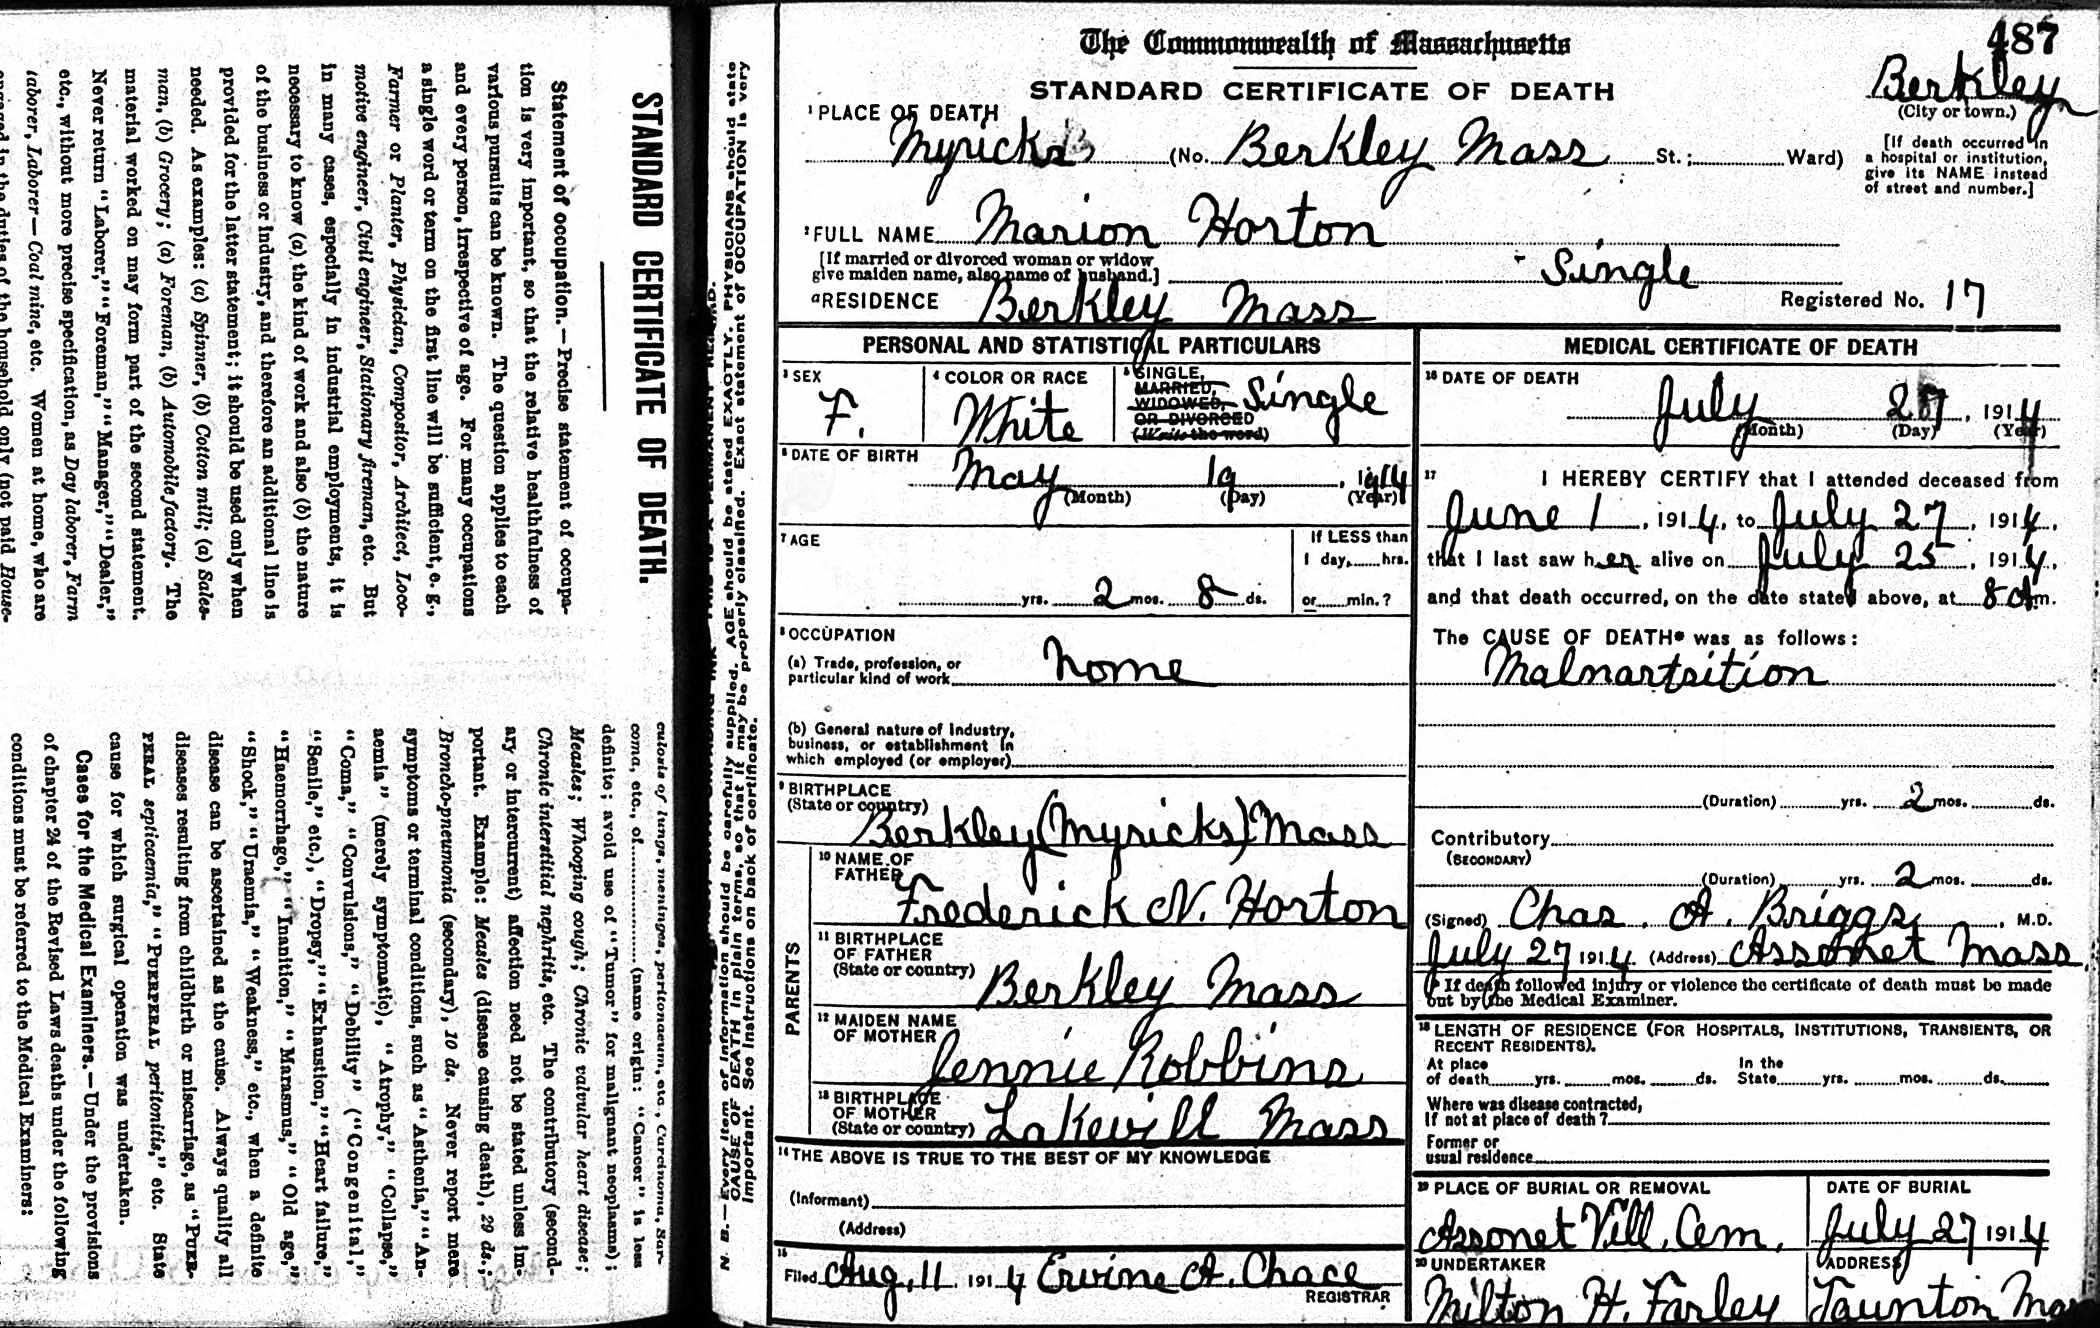 STANDARD CERTIFICATE OF DEATH.
Statement of occupation.—Precise statement of occupa-
tion is very important, so that the relative healthfulness of
various pursuits can be known. The question applies to each
and every person, irrespective of age. For many occupations
a single word or term on the first line will be sufficient, e. g.,
Farmer or Planter, Physician, Compositor, Architect, Loco-
motive engineer, Civil engineer, Stationary fireman, etc. But
in many cases, especially in industrial employments, it is
necessary to know (a) the kind of work and also (b) the nature
of the business or industry, and therefore an additional line is
provided for the latter statement; it should be used only when
needed. As examples: (a) Spinner, (b) Cotton mill; (a) Sales-
man, (b) Grocery; (a) Foreman, (b) Automobile factory. The
material worked on may form part of the second statement.
Never return "Laborer," "Foreman," "Manager," "Dealer,"
etc., without more precise specification, as Day laborer, Farm
laborer, Laborer—Coal mine, etc. Women at home, who are
engaged in the duties of the household only (not paid House-
culosis of lungs, meninges, peritonaeum, etc., Carcinoma, Sar-
coma, etc., of............ (name origin: "Cancer" is less
definite; avoid use of "Tumor" for malignant neoplasms);
Measles; Whooping cough; Chronic valvular heart disease;
Chronic interstitial nephritis, etc. The contributory (second-
ary or intercurrent) affection need not be stated unless im-
portant. Example: Measles (disease causing death), 29 ds.;
Broncho-pneumonia (secondary), 10 ds. Never report mere
symptoms or terminal conditions, such as "Asthenia," "An-
aemia" (merely symptomatic), "Atrophy," "Collapse,"
"Coma," "Convulsions," "Debility" ("Congenital,"
"Senile," etc.), "Dropsy," "Exhaustion," "Heart failure,"
"Haemorrhage," "Inanition," "Marasmus," "Old age,"
"Shock," "Uraemia," "Weakness," etc., when a definite
disease can be ascertained as the cause. Always qualify all
diseases resulting from childbirth or miscarriage, as "PUER-
PERAL septicaemia," "PUERPERAL peritonitis," etc. State
cause for which surgical operation was undertaken.
Cases for the Medical Examiners.—Under the provisions
of chapter 24 of the Revised Laws deaths under the following
conditions must be referred to the Medical Examiners:
N. B.—Every item of information should be carefully supplied. AGE should be stated EXACTLY. PHYSICIANS should state
CAUSE OF DEATH in plain terms, so that it may be properly classified. Exact statement of OCCUPATION is very
important. See instructions on back of certificate.
487
The Commonwealth of Massachusetts
STANDARD CERTIFICATE OF DEATH
Berkley
(City or town.)
1 PLACE OF DEATH
Myricks (No. Berkley Mass St.; Ward)
[If death occurred in
a hospital or institution,
give its NAME instead
of street and number.]
2 FULL NAME Marion Horton
[If married or divorced woman or widow
give maiden name, also name of husband.] Single
a RESIDENCE Berkley Mass
Registered No. 17
PERSONAL AND STATISTICAL PARTICULARS
3 SEX
F.
4 COLOR OR RACE
White
5 SINGLE,
MARRIED,
WIDOWED,
OR DIVORCED
(Write the word)
Single
6 DATE OF BIRTH
May 19, 1914
(Month) (Day) (Year)
7 AGE
yrs. 2 mos. 8 ds.
If LESS than
1 day, hrs.
or min.?
8 OCCUPATION
(a) Trade, profession, or
particular kind of work
None
(b) General nature of industry,
business, or establishment in
which employed (or employer)
9 BIRTHPLACE
(State or country)
Berkley (Myricks) Mass
PARENTS
10 NAME OF
FATHER
Frederick N. Horton
11 BIRTHPLACE
OF FATHER
(State or country)
Berkley Mass
12 MAIDEN NAME
OF MOTHER
Jennie Robbins
13 BIRTHPLACE
OF MOTHER
(State or country)
Lakevill Mass
14 THE ABOVE IS TRUE TO THE BEST OF MY KNOWLEDGE
(Informant)
(Address)
15
Filed Aug. 11 1914 Ervine A. Chace
REGISTRAR
MEDICAL CERTIFICATE OF DEATH
16 DATE OF DEATH
July 27, 1914
(Month) (Day) (Year)
17 I HEREBY CERTIFY that I attended deceased from
June 1, 1914, to July 27, 1914,
that I last saw her alive on July 25, 1914,
and that death occurred, on the date stated above, at 8 A m.
The CAUSE OF DEATH* was as follows:
Malnartsition
(Duration) yrs. 2 mos. ds.
Contributory
(SECONDARY)
(Duration) yrs. 2 mos. ds.
(Signed) Chas. A. Briggs, M.D.
July 27 1914 (Address) Assonet Mass.
* If death followed injury or violence the certificate of death must be made
out by the Medical Examiner.
18 LENGTH OF RESIDENCE (FOR HOSPITALS, INSTITUTIONS, TRANSIENTS, OR
RECENT RESIDENTS).
At place
of death yrs. mos. ds.
In the
State yrs. mos. ds.
Where was disease contracted,
If not at place of death?
Former or
usual residence
19 PLACE OF BURIAL OR REMOVAL
Assonet Vill. Cem.
DATE OF BURIAL
July 27 1914
20 UNDERTAKER
Milton H. Farley
ADDRESS
Taunton Mas